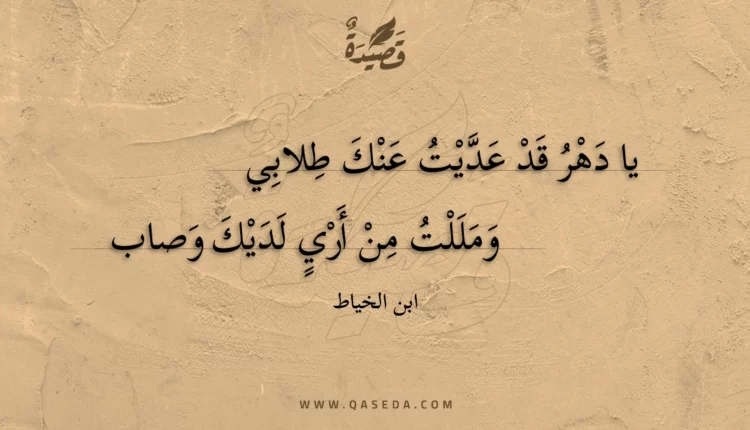 قَصِيدَةٌ
يا دَهْرُ قَدْ عَدَّيْتُ عَنْكَ طِلابِي
وَمَلَلْتُ مِنْ أَرْيٍ لَدَيْكَ وَصاب
ابن الخياط
WWW.QASEDA.COM